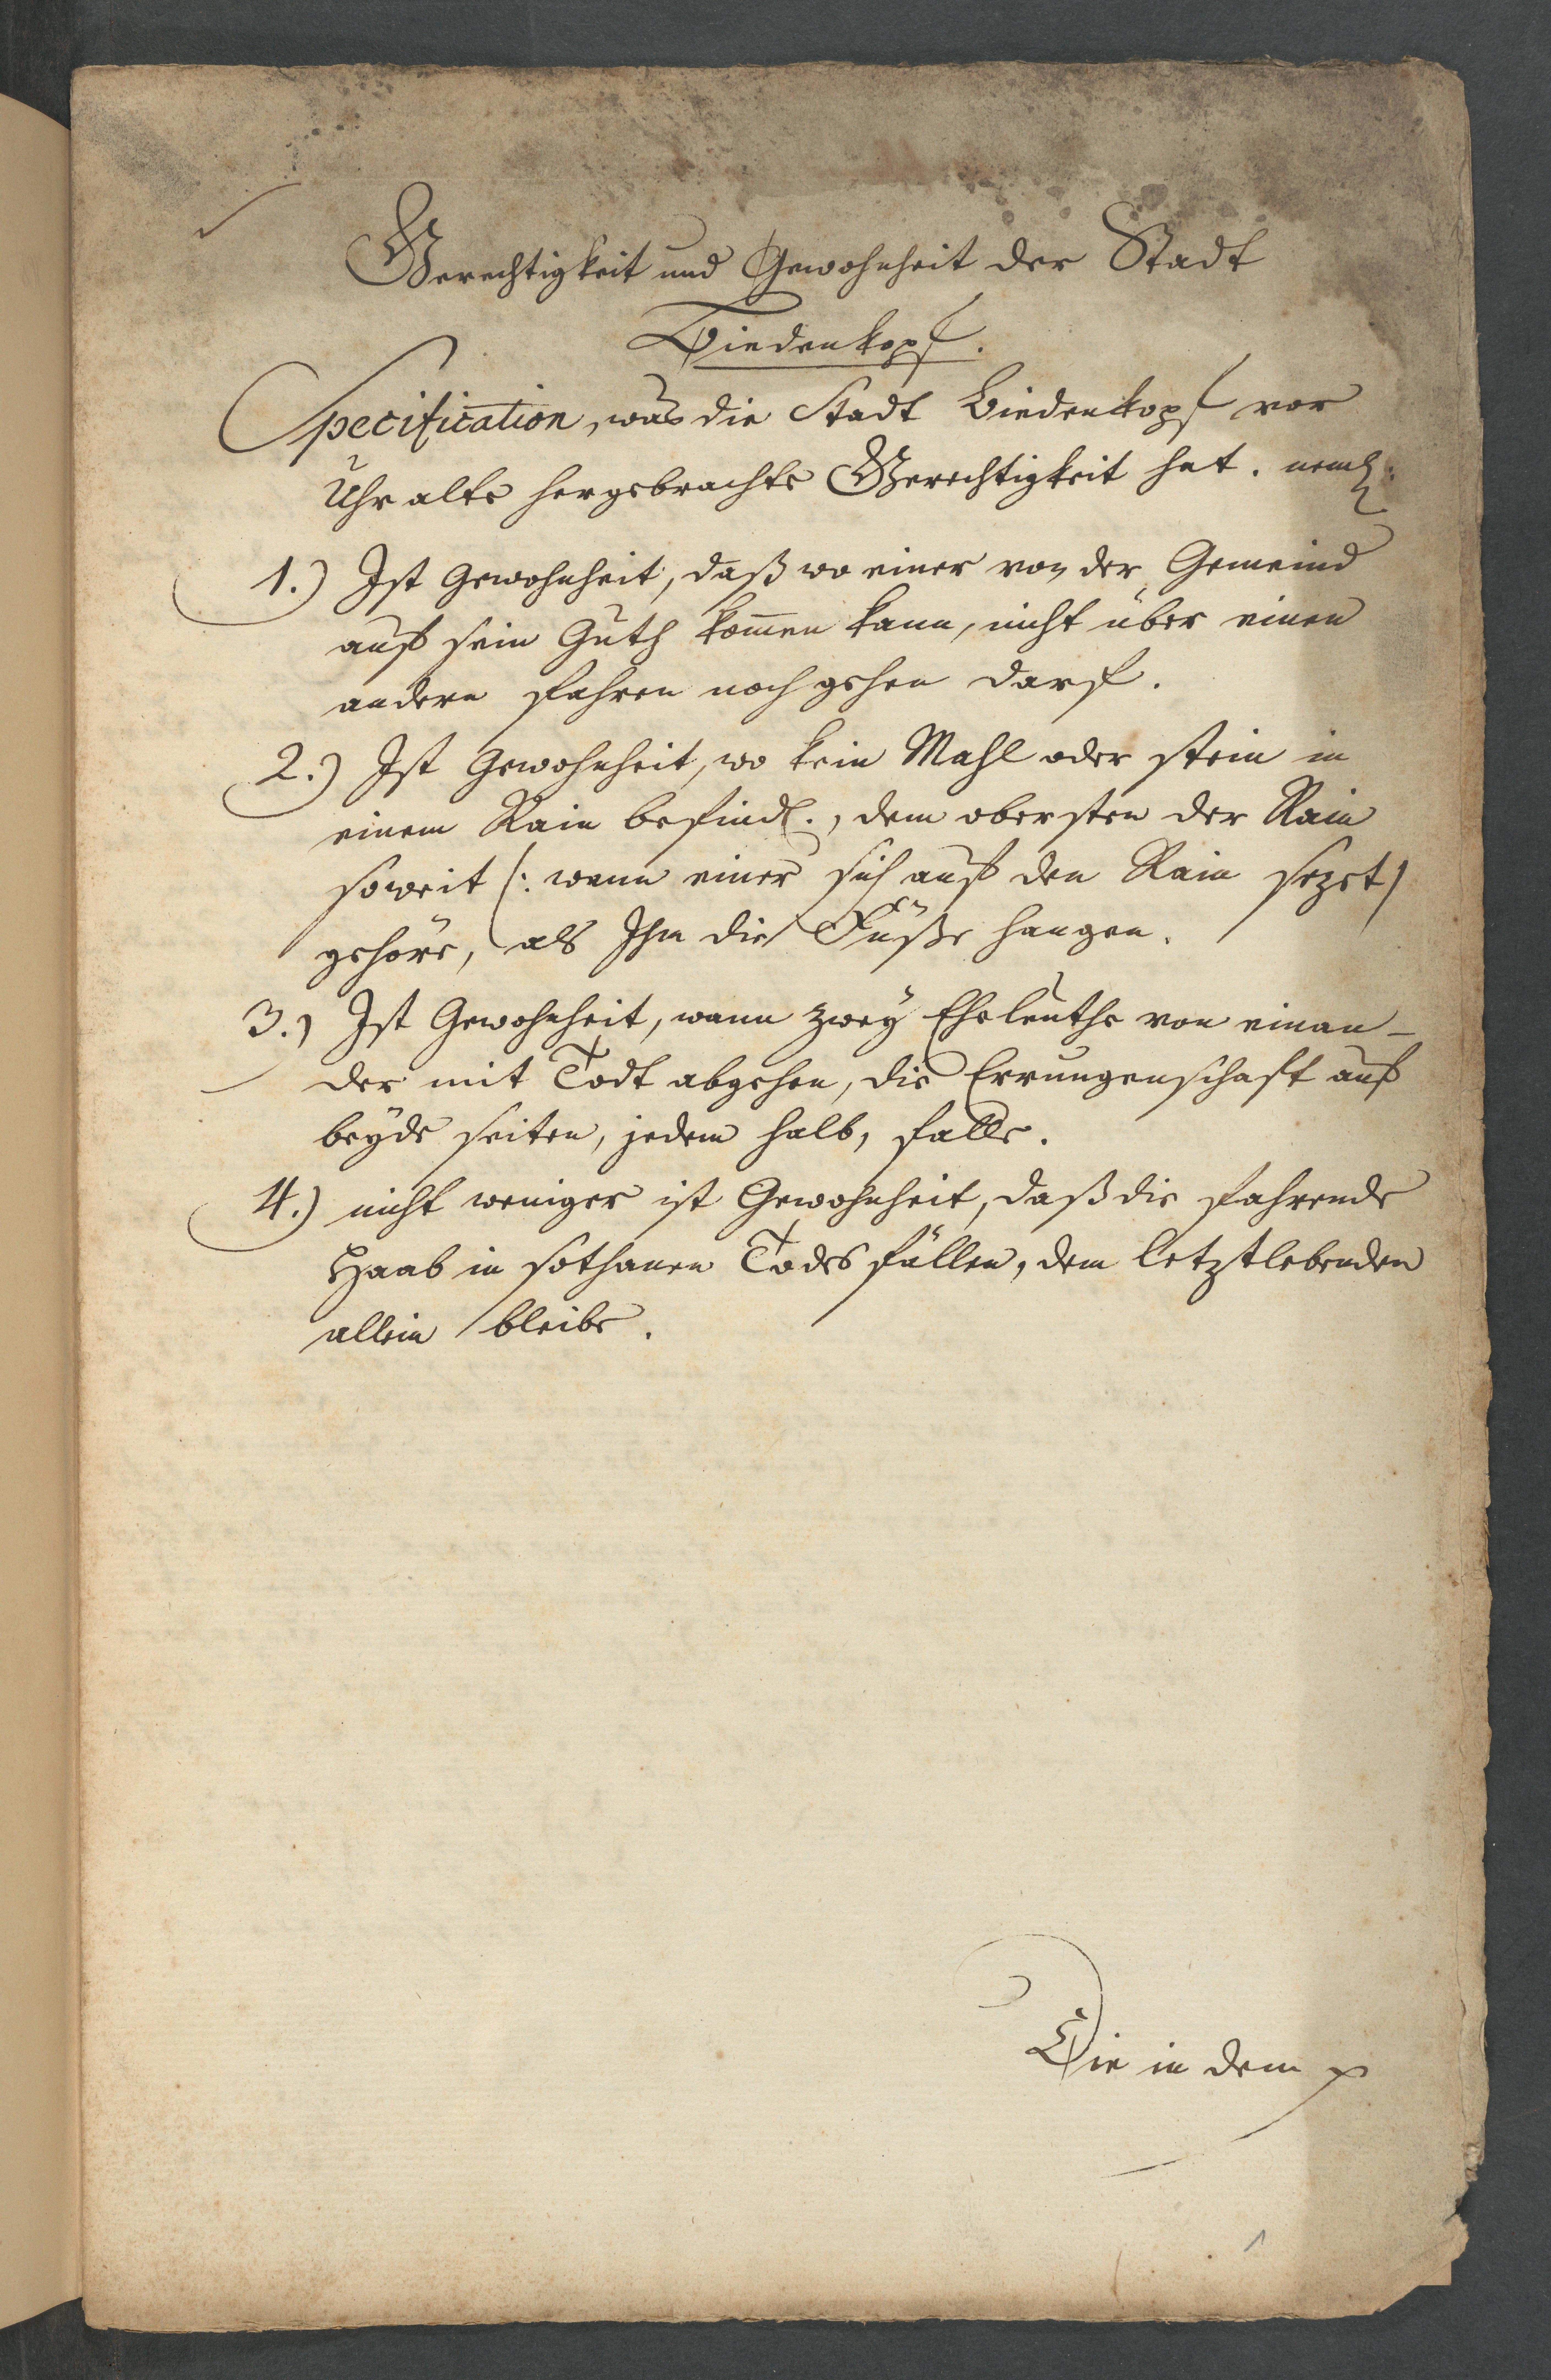 Gerechtigkeit und Gewohnheit der Stadt
Biedenkopf.
Specification, was die Stadt Biedenkopf vor
Uhr alte hergebrachte Gerechtigkeit hat. neml.
1.) Ist Gewohnheit, daß wo einer von der Gemeind
auf sein Guth kom̅en kann, nicht über einen
andern fahren noch gehen darf.
2.) Ist Gewohnheit, wo kein Mahl oder stein in
einem Rain befindl., dem obersten der Rain
soweit (: wenn einer sich auf den Rain sezet)
gehöre, als Ihm die Füße hangen.
3.) Ist Gewohnheit, wann zwey Eheleuthe von einan-
der mit Todt abgehen, die Errungenschaft auf
beyde seiten, jedem halb, falle.
4.) nicht weniger ist Gewohnheit, daß die fahrende
Haab in sothanen Todes fällen, dem letztlebenden
allein bleibe.
Die in dem
1